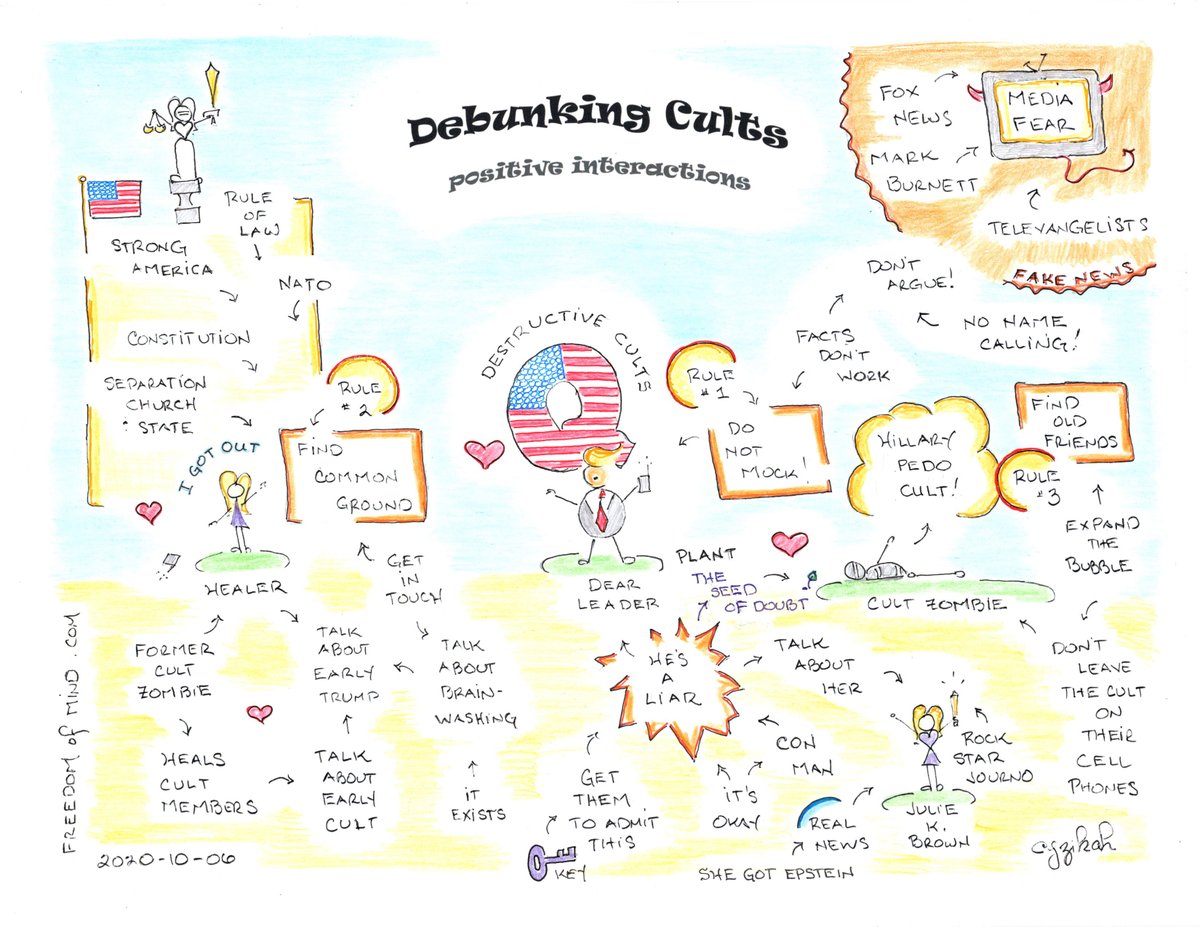 Debunking Cults
positive interactions
RULE
OF
LAW
STRONG
AMERICA
NATO
CONSTITUTION
SEPARATION
CHURCH
& STATE
I GOT OUT
HEALER
RULE
# 2
FIND
COMMON
GROUND
GET
IN
TOUCH
FORMER
CULT
ZOMBIE
HEALS
CULT
MEMBERS
TALK
ABOUT
EARLY
TRUMP
TALK
ABOUT
EARLY
CULT
TALK
ABOUT
BRAIN-
WASHING
IT
EXISTS
DESTRUCTIVE CULTS
Q
DEAR
LEADER
RULE
# 1
DO
NOT
MOCK!
FACTS
DON'T
WORK
DON'T
ARGUE!
NO NAME
CALLING!
FOX
NEWS
MARK
BURNETT
MEDIA
FEAR
TELEVANGELISTS
FAKE NEWS
HILLARY
PEDO
CULT!
FIND
OLD
FRIENDS
RULE
# 3
EXPAND
THE
BUBBLE
CULT ZOMBIE
DON'T
LEAVE
THE CULT
ON
THEIR
CELL
PHONES
PLANT
THE
SEED
OF DOUBT
HE'S
A
LIAR
TALK
ABOUT
HER
CON
MAN
IT'S
OKAY
GET
THEM
TO ADMIT
THIS
KEY
REAL
NEWS
SHE GOT EPSTEIN
ROCK
STAR
JOURNO
JULIE
K.
BROWN
FREEDOM of MIND . COM
2020-10-06
cgzikah